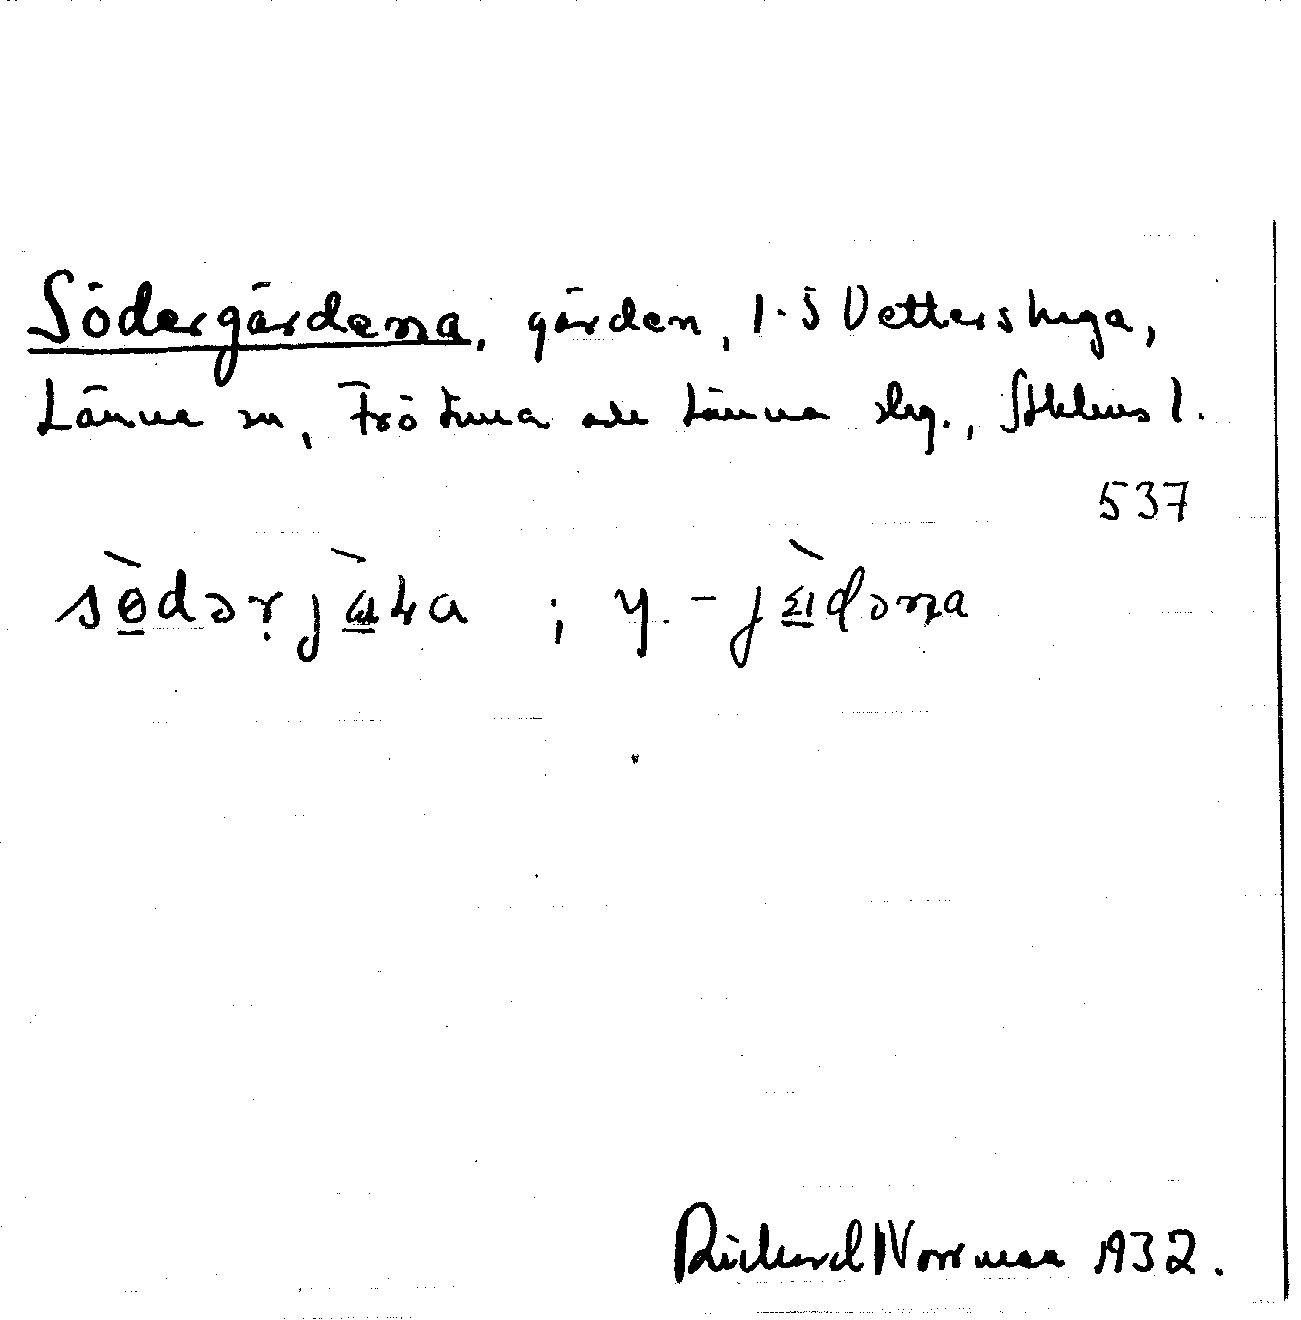 Södergårdena, gården, 1-5 Vettershaga,
Länna sn, Frötuna och Länna slg., Sthlms l.
537
sö̀dərjà
; y. - jädəna
Richard Norrman 1932.